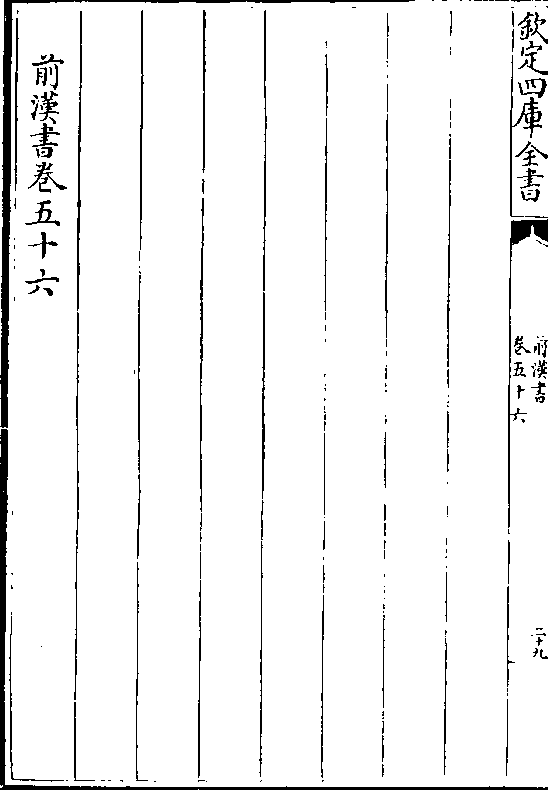 欽定四庫全書
前漢書
卷五十六
二十九
前漢書卷五十六